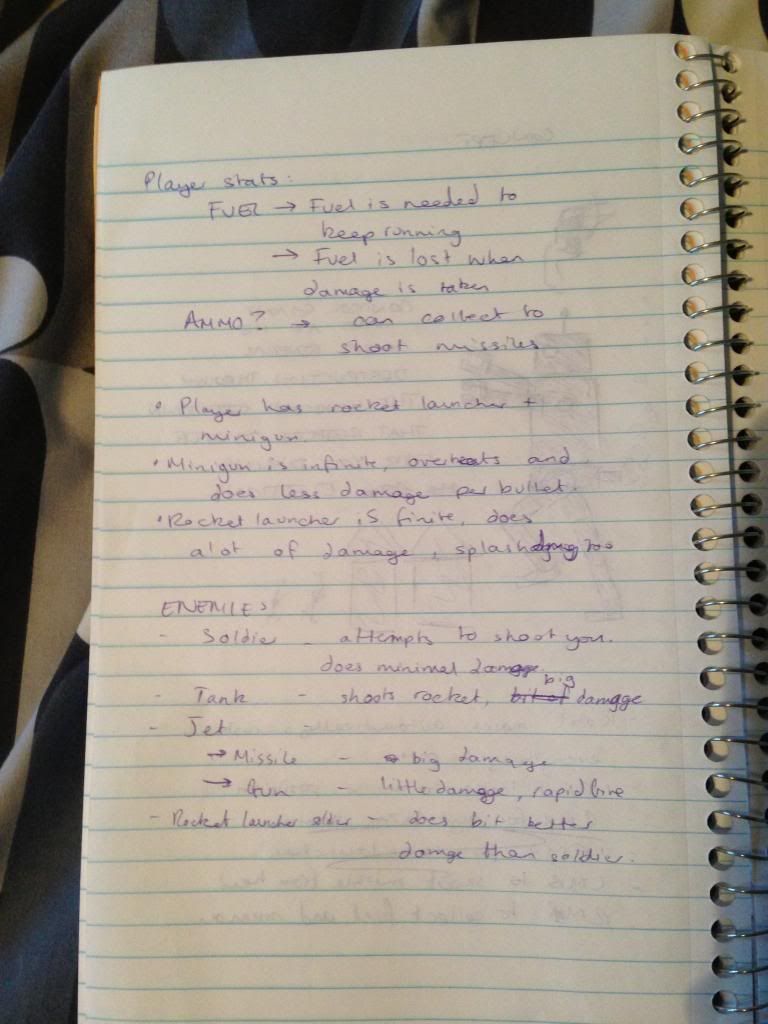 Player stats:
FUEL → Fuel is needed to
keep running
→ Fuel is lost when
damage is taken
AMMO? → can collect to
shoot missiles
• Player has rocket launcher +
minigun.
• Minigun is infinite, overheats and
does less damage per bullet.
• Rocket launcher is finite, does
alot of damage, splash dmg too
ENEMIES
- Soldier - attempts to shoot you.
does minimal damage.
- Tank - shoots rocket, big damage
- Jet -
→ Missile - big damage
→ Gun - little damage, rapid fire
- Rocket launcher soldier - does bit better
damge than soldier.